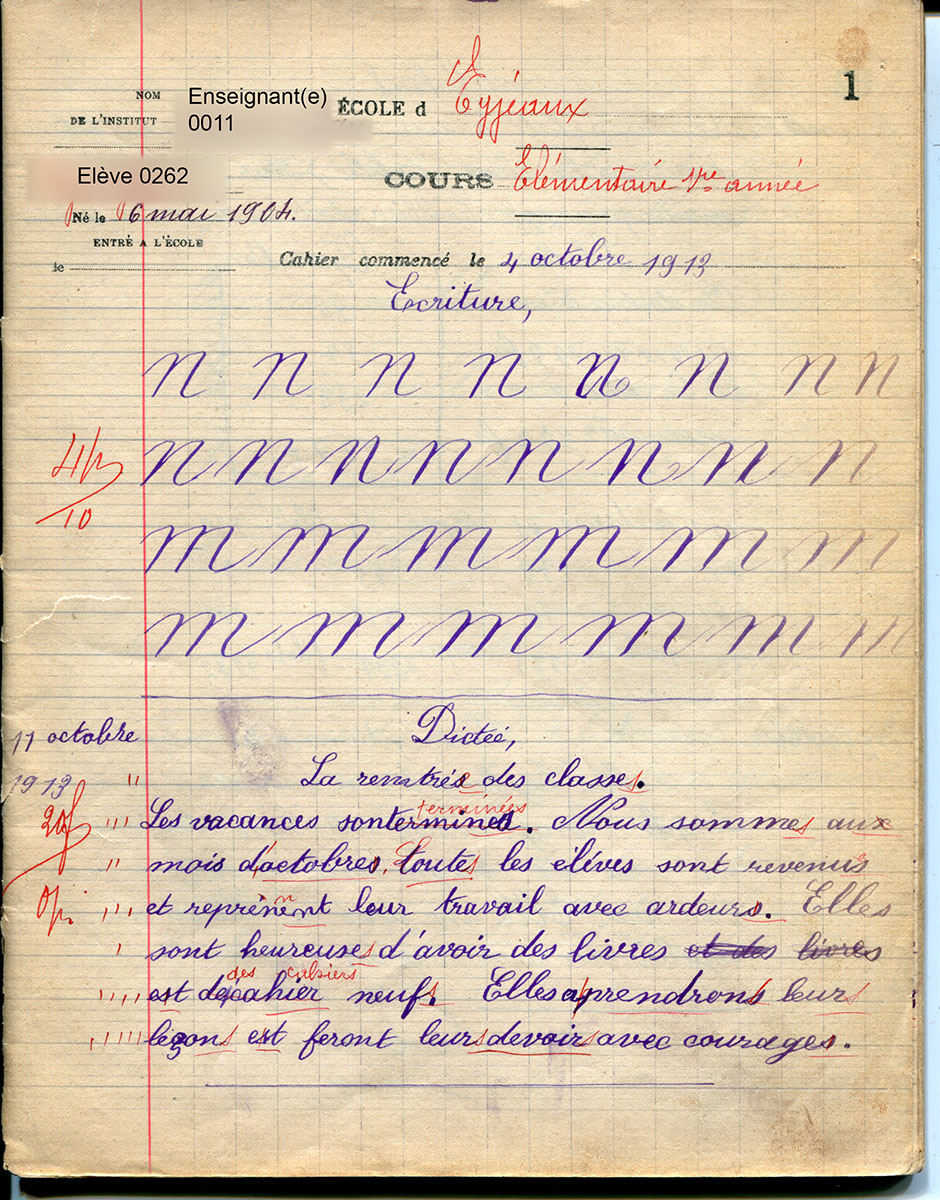 1
NOM
DE L'INSTITUT
Enseignant(e)
0011
ÉCOLE d Eyjeaux
Elève 0262
COURS Elémentaire 1re année
Né le 6 mai 1904.
ENTRÉ A L'ÉCOLE
le
Cahier commencé le 4 octobre 1913
Ecriture,
n n n n n n n n
n n n n n n n n
10
m m m m m m
m m m m m m
11 octobre
1913
Dictée,
La rentrée des classes.
terminées
Les vacances sont terminées. Nous sommes aux
mois d'octobres, toutes les élèves sont revenus
et reprènent leur travail avec ardeurs. Elles
sont heureuses d'avoir des livres et des livres
des cahiers
est de cahier neufs. Elles aprendrons leurs
leçons est feront leurs devoirs avec courages.
20f
0p.